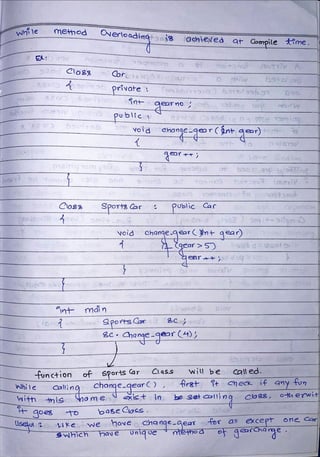 while method Overloading is achieved at Compile time.
Ex:
Class Car
{ private :
int gear no ;
public :
void change_gear ( int gear)
{
gear ++ ;
}
}
Class Sports Car : public Car
{
void change_gear ( int gear)
{ if (gear > 5)
gear ++ ;
}
}
int main
{ Sports Car sc ;
sc . Change_gear (4) ;
}
function of sports Car Class will be called.
While calling change_gear( ) , first it check if any fun
with this name exist in calling class, otherwis
it goes to base Class.
Useful : like we have change_gear for all except one car
which have unique method of gear change .